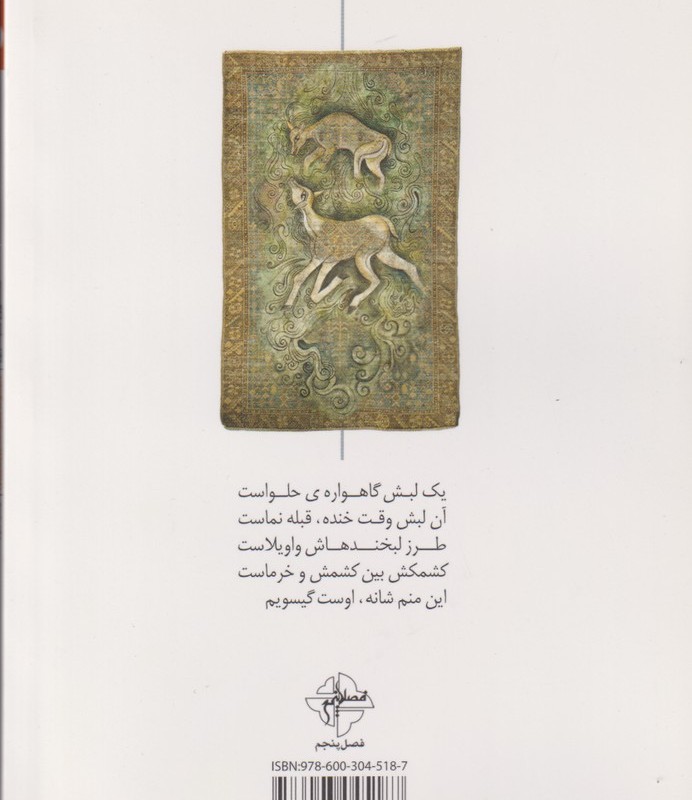 یک لبش گاهواره ی حلواست
آن لبش وقت خنده، قبله نماست
طرز لبخندهاش واویلاست
کشمکش بین کشمش و خرماست
این منم شانه، اوست گیسویم
فصل پنجم
فصل پنجم
ISBN:978-600-304-518-7